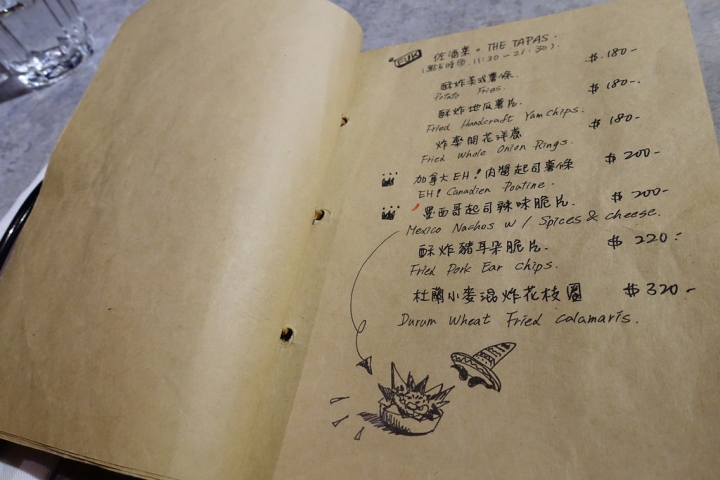 FUK 佐酒菜。THE TAPAS.
(點餐時間. 11:30 - 21:30).
酥炸美式薯條 $ 180-.
Potato Fries.
酥炸地瓜薯片. $ 180-.
Fried Handcraft Yam chips.
炸整朋花洋蔥 $ 180-
Fried Whole Onion Rings.
加拿大EH!肉醬起司薯條 $ 200-
EH! Canadien Poutine.
墨西哥起司辣味脆片. $ 200-
Mexico Nachos w/ Spices & cheese.
酥炸豬耳朵脆片. $ 220-
Fried Pork Ear chips.
杜蘭小麥混炸花枝圈 $ 320-
Durum Wheat Fried calamaris.